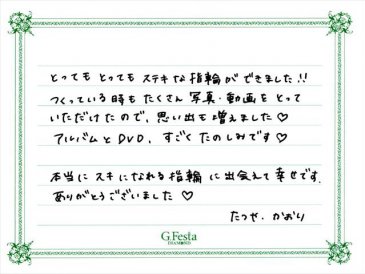 とってもとってもステキな指輪ができました!!
つくっている時もたくさん写真・動画をとって
いただけたので、思い出も増えました♡
アルバムとDVD、すごくたのしみです♡
本当にスキになれる指輪に出会えて幸せです。
ありがとうございました♡
たつや、かおり
G.Festa
DIAMOND